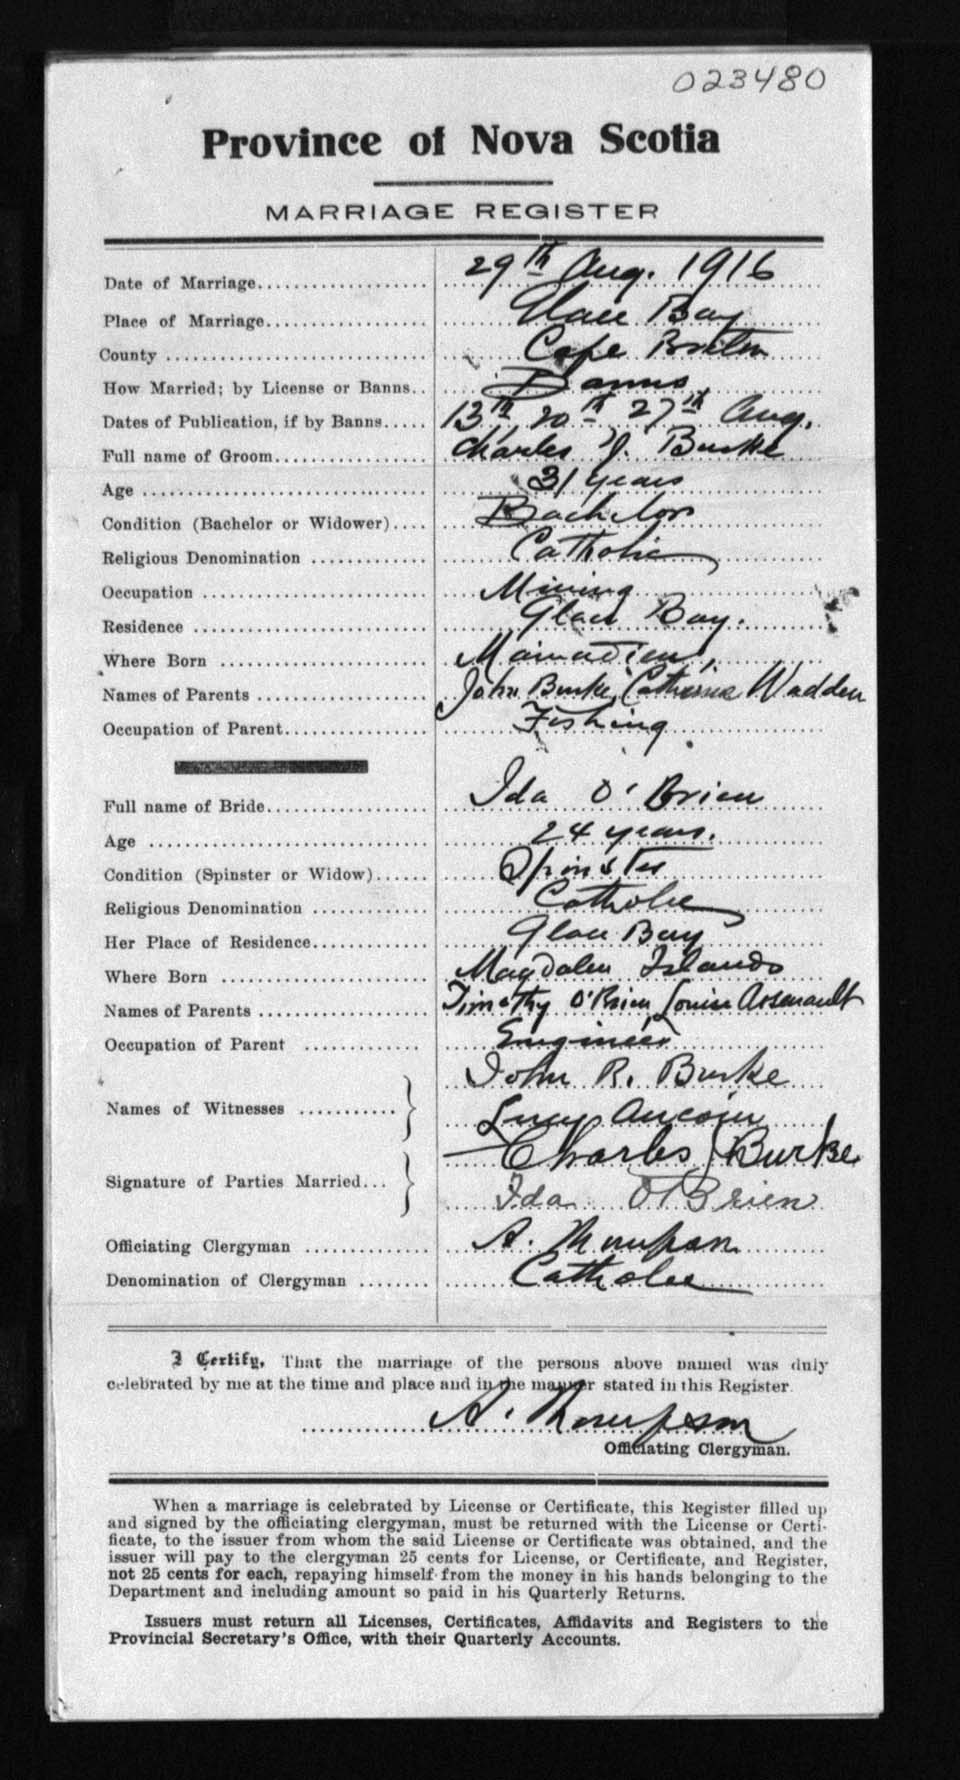 023480
Province of Nova Scotia
MARRIAGE REGISTER
Date of Marriage 29th Aug. 1916
Place of Marriage Glace Bay
County Cape Breton
How Married; by License or Banns Banns
Dates of Publication, if by Banns 13th, 20th 27th Aug.
Full name of Groom Charles J. Burke
Age 31 years
Condition (Bachelor or Widower) Bachelor
Religious Denomination Catholic
Occupation Mining
Residence Glace Bay.
Where Born Mainadieu,
Names of Parents John Burke, Catherine Wadden
Occupation of Parent Fishing
Full name of Bride Ida O'Brien
Age 24 years.
Condition (Spinster or Widow) Spinster
Religious Denomination Catholic
Her Place of Residence Glace Bay
Where Born Magdalen Islands
Names of Parents Timothy O'Brien, Louise Arsenault
Occupation of Parent Engineer
John R. Burke
Names of Witnesses
Lucy Aucoin
Charles J Burke
Signature of Parties Married
Ida O'Brien
Officiating Clergyman A. Thompson
Denomination of Clergyman Catholic
I Certify, That the marriage of the persons above named was duly
celebrated by me at the time and place and in the manner stated in this Register.
A. Thompson
Officiating Clergyman.
When a marriage is celebrated by License or Certificate, this Register filled up
and signed by the officiating clergyman, must be returned with the License or Certi-
ficate, to the issuer from whom the said License or Certificate was obtained, and the
issuer will pay to the clergyman 25 cents for License, or Certificate, and Register,
not 25 cents for each, repaying himself from the money in his hands belonging to the
Department and including amount so paid in his Quarterly Returns.
Issuers must return all Licenses, Certificates, Affidavits and Registers to the
Provincial Secretary's Office, with their Quarterly Accounts.